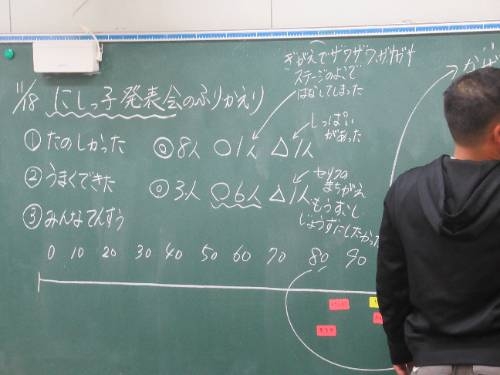 きがえでザワザワ、ガヤガヤ
ステージの上で
はなしてしまった
11/18 にしっ子発表会のふりかえり
① たのしかった ◎8人 ○1人 △1人
しっぱい
があった
② うまくできた ◎3人 ○6人 △1人
セリフの
まちがえ
もうすこし
じょうずにしたかった
③ みんなでんすう
0 10 20 30 40 50 60 70 80 90